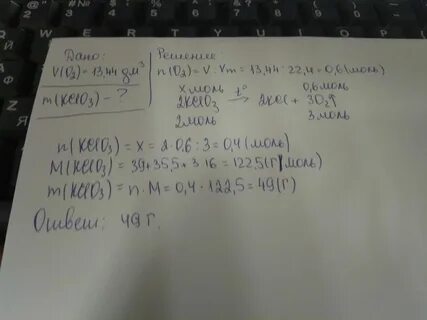 Дано:
V(O₂)=13,44 дм³
m(KClO₃) – ?
Решение:
n(O₂) = V : Vm = 13,44 : 22,4 = 0,6(моль)
x моль 0,6 моль
2KClO₃ —t°→ 2KCl + 3O₂↑
2 моль 3 моль
n(KClO₃) = x = 2·0,6 : 3 = 0,4 (моль)
M(KClO₃) = 39+35,5+3·16 = 122,5(г/моль)
m(KClO₃) = n·M = 0,4 · 122,5 = 49(г)
Ответ: 49 г.